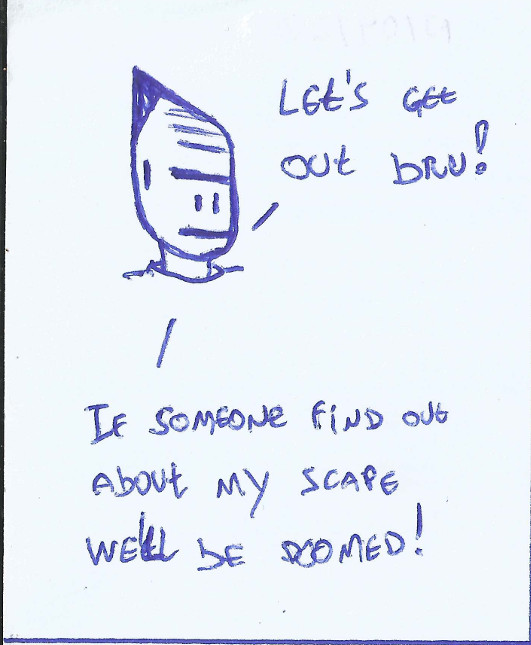 LEt'S GEt
OUt BRU!
IF SOMEONE FIND OUt
ABOUt MY SCAPE
WE'LL BE DOOMED!